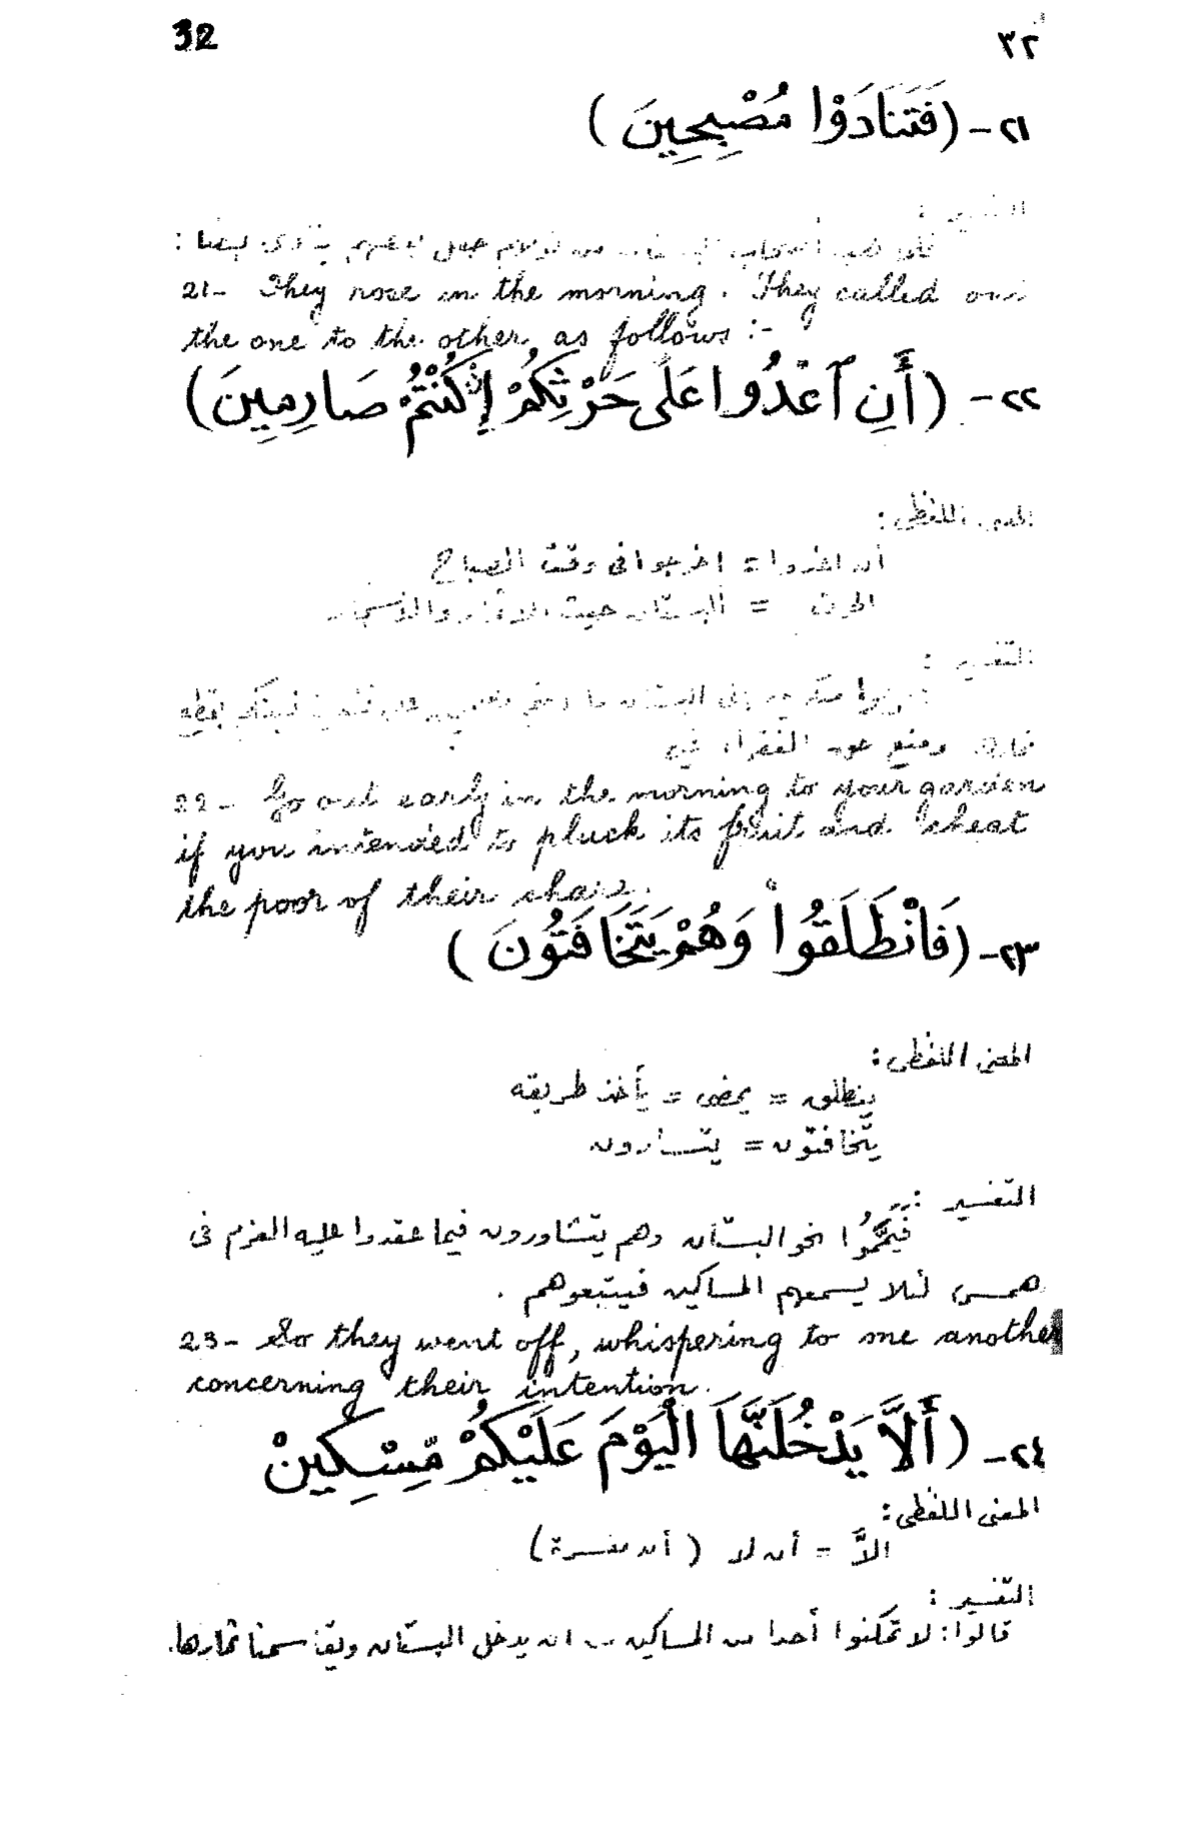 32
٣٢
٢١- (فَتَنَادَوْا مُصْبِحِينَ)
التفسير :
من نومهم جعل بعضهم ينادى بعضا :
21- They rose in the morning. They called out
the one to the other, as follows :-
٢٢- (أَنِ ٱغْدُوا عَلَى حَرْثِكُمْ إِنْ كُنْتُمْ صَارِمِينَ)
المعنى اللفظى :
أن اغدوا = اخرجوا فى وقت الصباح
الحرث = البستان حيث الاثمار والأشجار
التفسير :
إلى البستان
ومنع عون الفقراء
22- Go out early in the morning to your garden
if you intended to pluck its fruit and cheat
the poor of their share.
٢٣- (فَانْطَلَقُوا وَهُمْ يَتَخَافَتُونَ)
المعنى اللفظى :
ينطلق = يمضى = يأخذ طريقه
يتخافتون = يتسارون
التفسير :
فَيَمَّمُوا نحو البستان وهم يتشاورون فيما عقدوا عليه العزم فى
همس لئلا يسمعهم المساكين فيتبعوهم .
23- So they went off, whispering to one another
concerning their intention.
٢٤- (أَلاَّ يَدْخُلَنَّهَا الْيَوْمَ عَلَيْكُمْ مِّسْكِينْ)
المعنى اللفظى :
الاَّ = أن لا (أن مفسرة)
التفسير :
قالوا: لا تمكنوا أحدا من المساكين من ان يدخل البستان ويقاسمنا ثمارها.